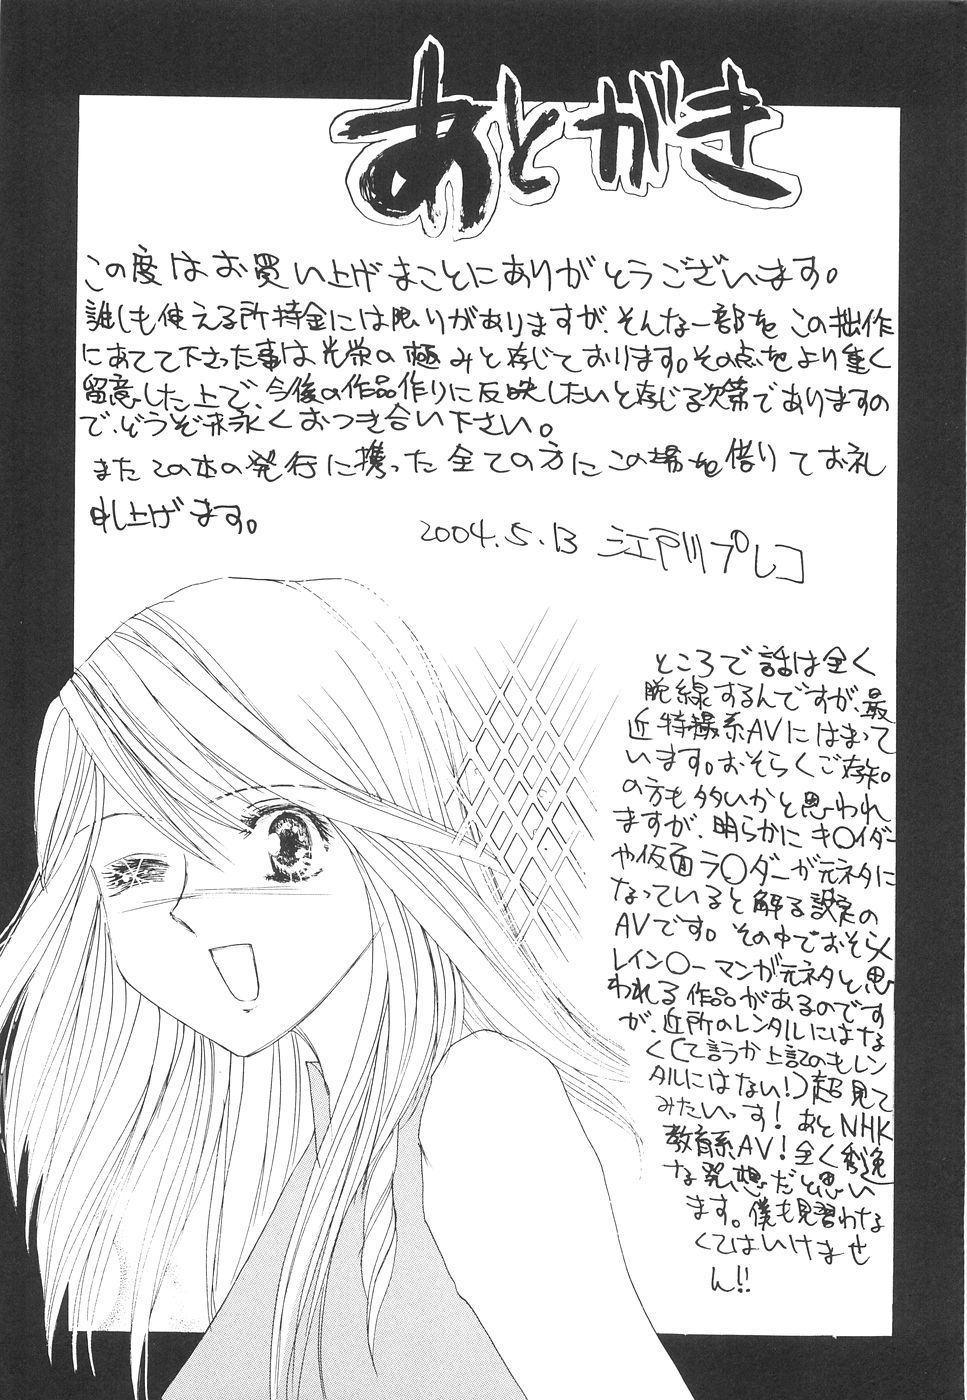 あとがき
この度はお買い上げまことにありがとうございます。
誰しも使える所持金には限りがありますが、そんな一部をこの拙作
にあてて下さった事は光栄の極みと存じております。その点をより重く
留意した上で、今後の作品作りに反映したいと存じる次第でありますの
で、どうぞ末永くおつき合い下さい。
またこの本の発行に携った全ての方にこの場を借りてお礼
申し上げます。
2004.5.13 江戸川プレコ
ところで話は全く
脱線するんですが、最
近特撮系AVにはまって
います。おそらくご存知
の方も多いかと思われ
ますが、明らかにキ○イダー
や仮面ラ○ダーが元ネタに
なっていると解る設定の
AVです。その中でおそらく
レイン○ーマンが元ネタと思
われる作品があるのです
が、近所のレンタルにはな
く(て言うか上記のもレン
タルにはない!)超見て
みたいっす!あとNHK
教育系AV!全く秀逸
な発想だと思い
ます。僕も見習わな
くてはいけませ
ん!!